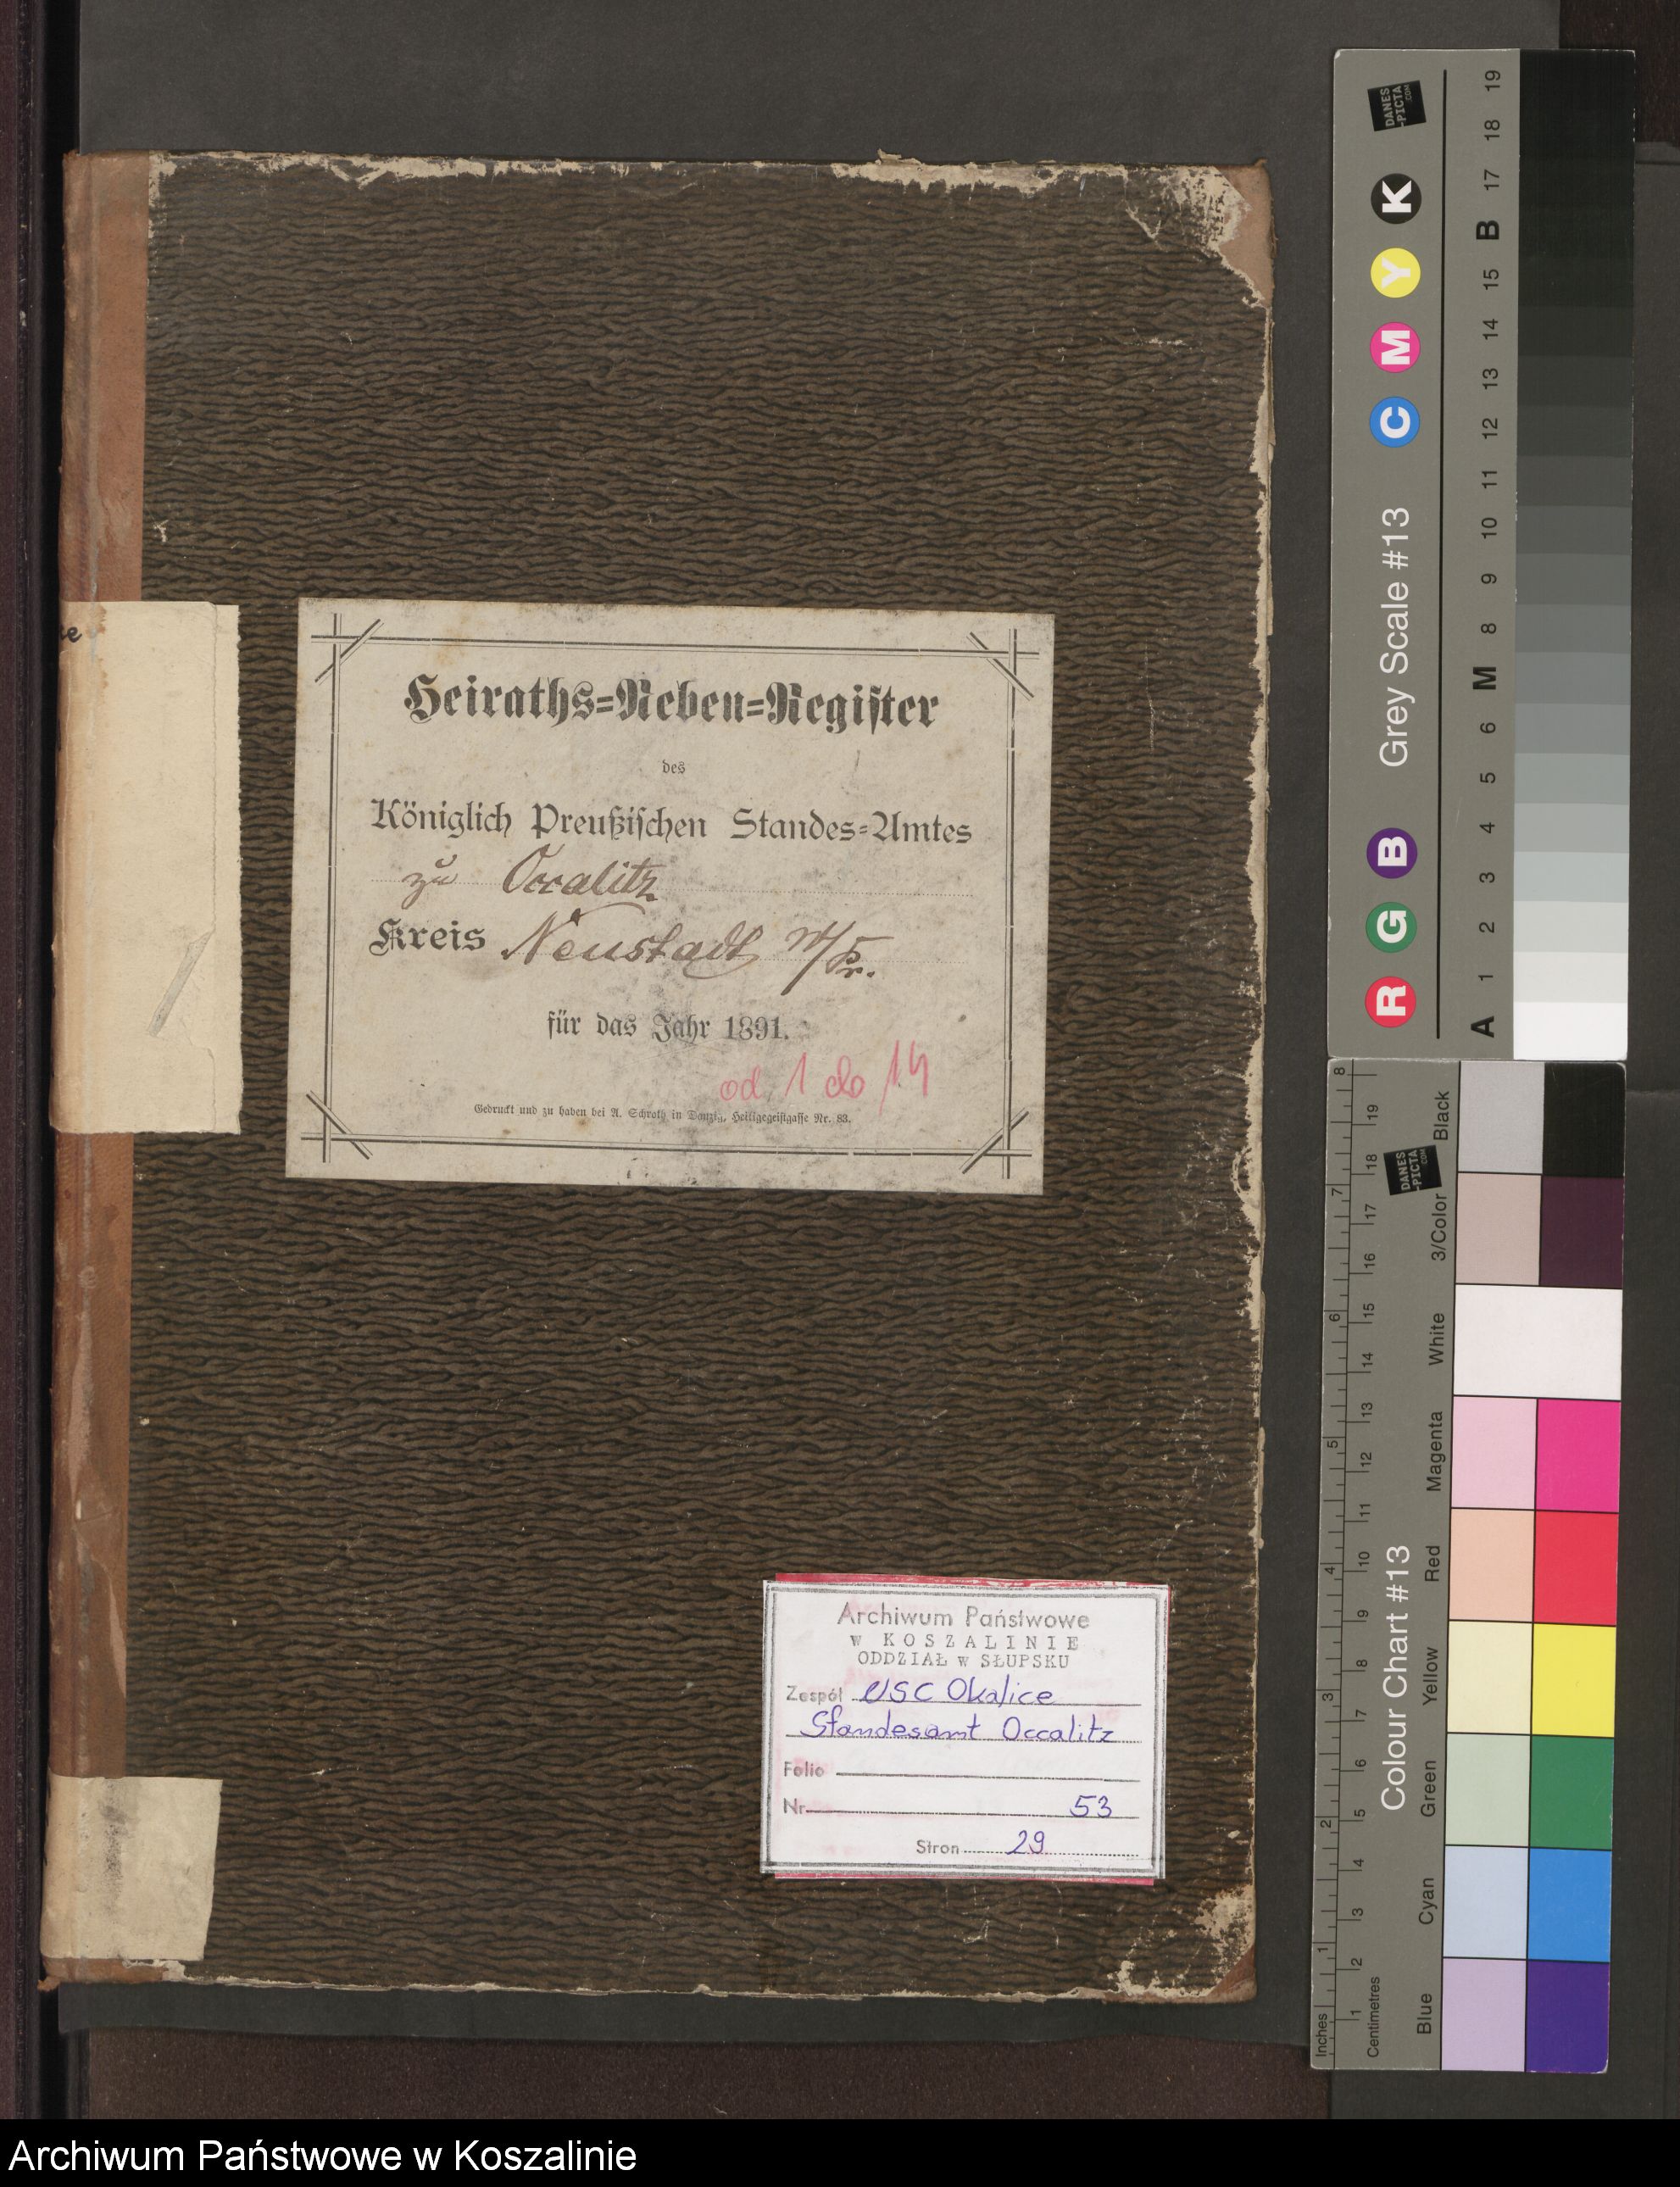 Heiraths=Neben=Register
des
Königlich Preußischen Standes=Amtes
zu Occalitz
Kreis Neustadt W/Pr.
für das Jahr 1891.
od 1 do 14
Gedruckt und zu haben bei A. Schroth in Danzig, Heiligegeistgasse Nr. 83.
Archiwum Państwowe
w KOSZALINIE
ODDZIAŁ w SŁUPSKU
Zespół USC Okalice
Standesamt Occalitz
Folio
Nr. 53
Stron 29
DANES
-PICTA
.COM
Grey Scale #13
R G B C M Y K
A 1 2 3 4 5 6 M 8 9 10 11 12 13 14 15 B 17 18 19
DANES
-PICTA
.COM
Colour Chart #13
Blue Cyan Green Yellow Red Magenta White 3/Color Black
Inches 1 2 3 4 5 6 7 8
Centimetres 1 2 3 4 5 6 7 8 9 10 11 12 13 14 15 16 17 18 19
Archiwum Państwowe w Koszalinie